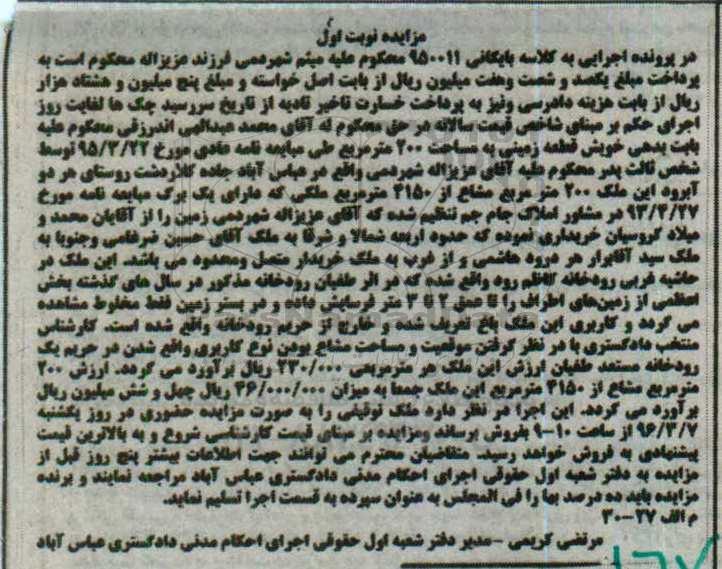 مزایده نوبت اول
در پرونده اجرایی به کلاسه بایگانی ۹۵۰۰۱۱ محکوم علیه میثم شهردمی فرزند عزیزاله محکوم است به
پرداخت مبلغ یکصد و شصت وهفت میلیون ریال از بابت اصل خواسته و مبلغ پنج میلیون و هشتاد هزار
ریال از بابت هزینه دادرسی ونیز به پرداخت خسارت تاخیر تادیه از تاریخ سررسید چک ها لغایت روز
اجرای حکم بر مبنای شاخص قیمت سالانه در حق محکوم له آقای محمد عبدالهی اندرزقی محکوم علیه
بابت بدهی خویش قطعه زمینی به مساحت ۲۰۰ مترمربع طی مبایعه نامه عادی مورخ ۹۵/۲/۲۲ توسط
شخص ثالث پدر محکوم علیه آقای عزیزاله شهردمی واقع در عباس آباد جاده کلاردشت روستای هر دو
آبرود این ملک ۲۰۰ متر مربع مشاع از ۴۱۵۰ مترمربع ملکی که دارای یک برگ مبایعه نامه مورخ
۹۳/۴/۲۷ در مشاور املاک جام جم تنظیم شده که آقای عزیزاله شهردمی زمین را از آقایان محمد و
میلاد گروسیان خریداری نموده که حدود اربعه شمالا و شرقا به ملک آقای حسین ضرغامی وجنوبا به
ملک سید آقابرار هر درود هاشمی و از غرب به ملک خریدار متصل ومحدود می باشد. این ملک در
حاشیه غربی رودخانه کاظم رود واقع شده که در اثر طغیان رودخانه مذکور در سال های گذشته بخش
اعظمی از زمین‌های اطراف را تا عمق ۲ تا ۳ متر فرسایش داده و در بستر زمین فقط مخلوط مشاهده
می گردد و کاربری این ملک باغ تعریف شده و خارج از حریم رودخانه واقع شده است. کارشناس
منتخب دادگستری با در نظر گرفتن موقعیت و مساحت مشاع بودن نوع کاربری واقع شدن در حریم یک
رودخانه مستعد طغیان ارزش این ملک هر مترمربعی ۲۳۰/۰۰۰ ریال برآورد می گردد. ارزش ۲۰۰
مترمربع مشاع از ۴۱۵۰ مترمربع این ملک جمعا به میزان ۴۶/۰۰۰/۰۰۰ ریال چهل و شش میلیون ریال
برآورد می گردد. این اجرا در نظر دارد ملک توقیفی را به صورت مزایده حضوری در روز یکشنبه
۹۶/۳/۷ از ساعت ۱۰-۹ بفروش برساند ومزایده بر مبنای قیمت کارشناسی شروع و به بالاترین قیمت
پیشنهادی به فروش خواهد رسید. متقاضیان محترم می توانند جهت اطلاعات بیشتر پنج روز قبل از
مزایده به دفتر شعبه اول حقوقی اجرای احکام مدنی دادگستری عباس آباد مراجعه نمایند و برنده
مزایده باید ده درصد بها را فی المجلس به عنوان سپرده به قسمت اجرا تسلیم نماید.
م الف ۲۷-۳۰
مرتضی کریمی -مدیر دفتر شعبه اول حقوقی اجرای احکام مدنی دادگستری عباس آباد